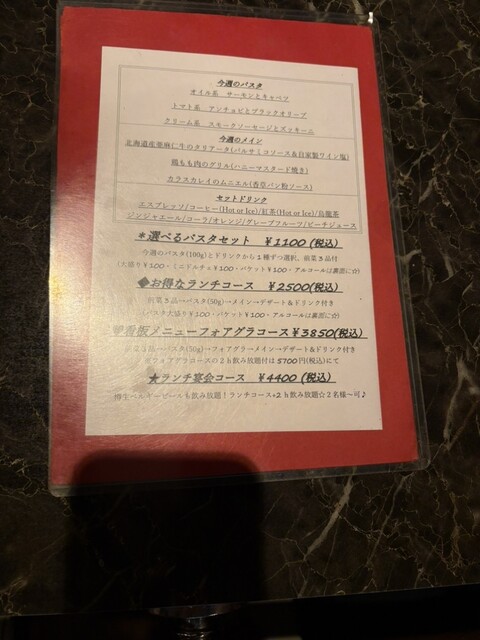 今週のパスタ
オイル系　サーモンとキャベツ
トマト系　アンチョビとブラックオリーブ
クリーム系　スモークソーセージとズッキーニ
今週のメイン
北海道産亜麻仁牛のクリアータ(バルサミコソース&自家製ワイン塩)
鶏もも肉のグリル(ハニーマスタード焼き)
カラスカレイのムニエル(香草パン粉ソース)
セットドリンク
エスプレッソ/コーヒー(Hot or Ice)/紅茶(Hot or Ice)/烏龍茶
ジンジャエール/コーラ/オレンジ/グレープフルーツ/ピーチジュース
＊選べるパスタセット　¥1100 (税込)
今週のパスタ(100g)とドリンクから１種ずつ選択、前菜３品付
(大盛り¥100・ミニドルチェ¥100・バケット¥100・アルコールは裏面に☆)
◆お得なランチコース　¥2500(税込)
前菜３品→パスタ(50g)→メイン→デザート＆ドリンク付き
(パスタ大盛り¥100・バケット¥100・アルコールは裏面に☆)
看板メニューフォアグラコース¥3850(税込)
前菜３品→パスタ(50g)→フォアグラ→メイン→デザート＆ドリンク付き
フォアグラコースの２ｈ飲み放題付は5700円(税込)にて
★ランチ宴会コース　¥4400 (税込)
樽生ベルギービールも飲み放題！ランチコース+２ｈ飲み放題☆２名様～可♪